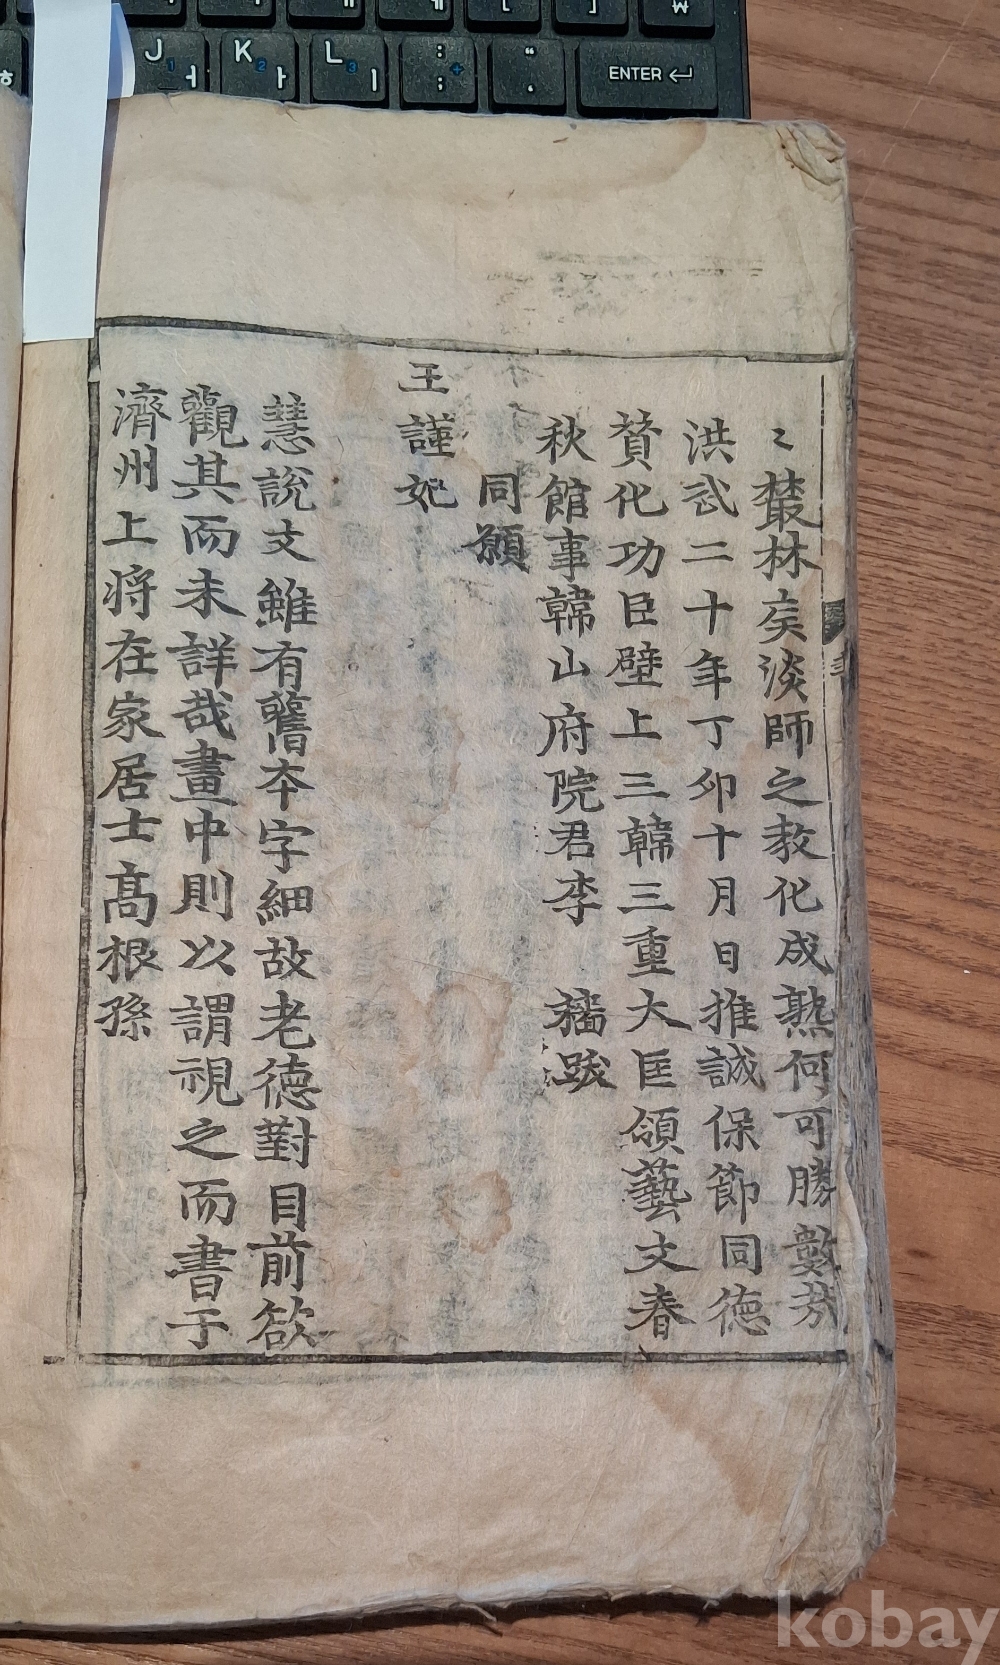 J ㅓ K ㅏ L ㅣ : ; “ ENTER
〻叢林矣淡師之教化成熟何可勝數哉
洪武二十年丁卯十月日推誠保節同德
賛化功臣壁上三韓三重大匡領藝文春
秋館事韓山府院君李 穡跋
同願
王謹妃
慧說文雖有舊本字細故老德對目前欲
觀其而未詳哉畫中則以謂視之而書于
濟州上將在家居士高根孫
kobay